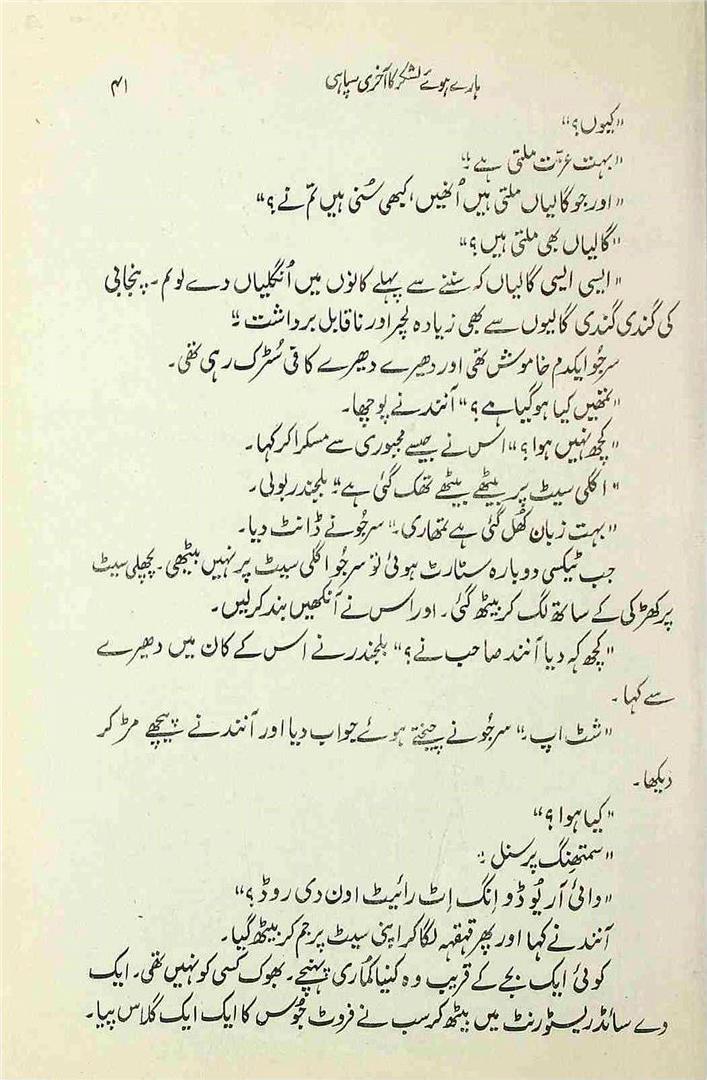 ہارے ہوئے لشکر کا آخری سپاہی ۴۱
"کیوں؟"
"بہت عزّت ملتی ہے۔"
"اور جو گالیاں ملتی ہیں اُنھیں، کبھی سُنی ہیں تم نے؟"
"گالیاں بھی ملتی ہیں؟"
"ایسی ایسی گالیاں کہ سننے سے پہلے کانوں میں اُنگلیاں دے لو تم۔ پنجابی
کی گندی گندی گالیوں سے بھی زیادہ لچر اور ناقابل برداشت۔"
سرجُو ایکدم خاموش تھی اور دھیرے دھیرے کافی سُڑک رہی تھی۔
"تمھیں کیا ہو گیا ہے؟" آنند نے پوچھا۔
"کچھ نہیں ہوا؟" اس نے جیسے مجبوری سے مسکرا کر کہا۔
"اگلی سیٹ پر بیٹھے بیٹھے تھک گئی ہے۔" بلجندر بولی۔
"بہت زبان کُھل گئی ہے تمھاری۔" سرجُو نے ڈانٹ دیا۔
جب ٹیکسی دوبارہ سٹارٹ ہوئی تو سرجُو اگلی سیٹ پر نہیں بیٹھی۔ پچھلی سیٹ
پر کھڑکی کے ساتھ لگ کر بیٹھ گئی۔ اور اس نے آنکھیں بند کر لیں۔
"کچھ کہہ دیا آنند صاحب نے؟" بلجندر نے اس کے کان میں دھیرے
سے کہا۔
"شٹ اپ۔" سرجُو نے چیختے ہوئے جواب دیا اور آنند نے پیچھے مڑ کر
دیکھا۔
"کیا ہوا؟"
"سمتھنگ پرسنل۔"
"وائی آر یُو ڈوانگ اِٹ رائیٹ اون دی روڈ؟"
آنند نے کہا اور پھر قہقہہ لگا کر اپنی سیٹ پر جم کر بیٹھ گیا۔
کوئی ایک بجے کے قریب وہ کنیا کماری پہنچے۔ بھوک کسی کو نہیں تھی۔ ایک
وے سائڈ ریسٹورنٹ میں بیٹھ کر سب نے فروٹ جُوس کا ایک ایک گلاس پیا۔